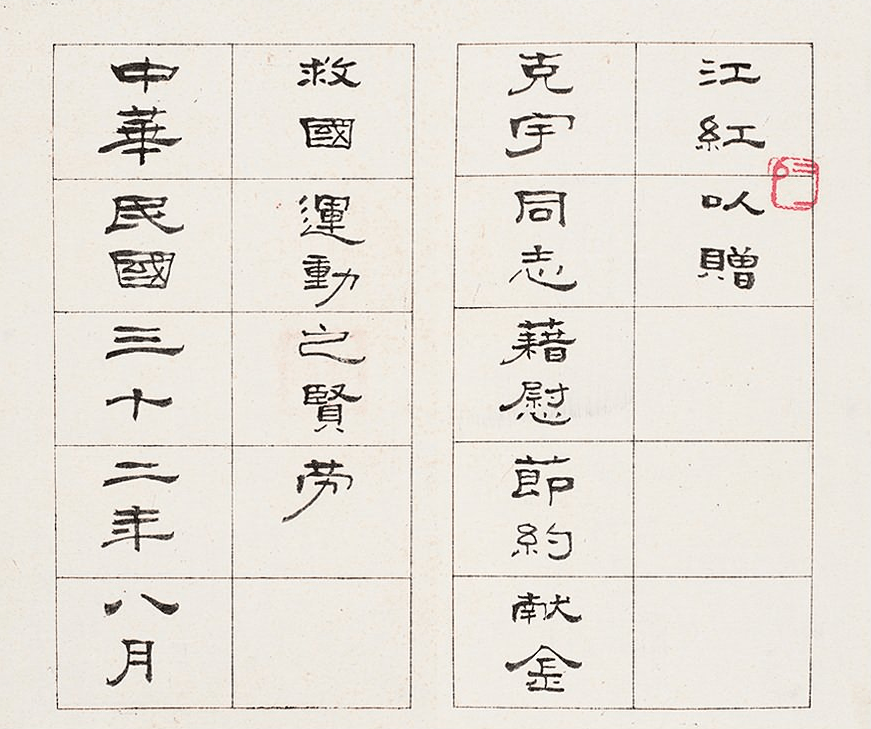 江紅以贈
克宇同志藉慰節約献金
救國運動之賢劳
中華民國三十二年八月